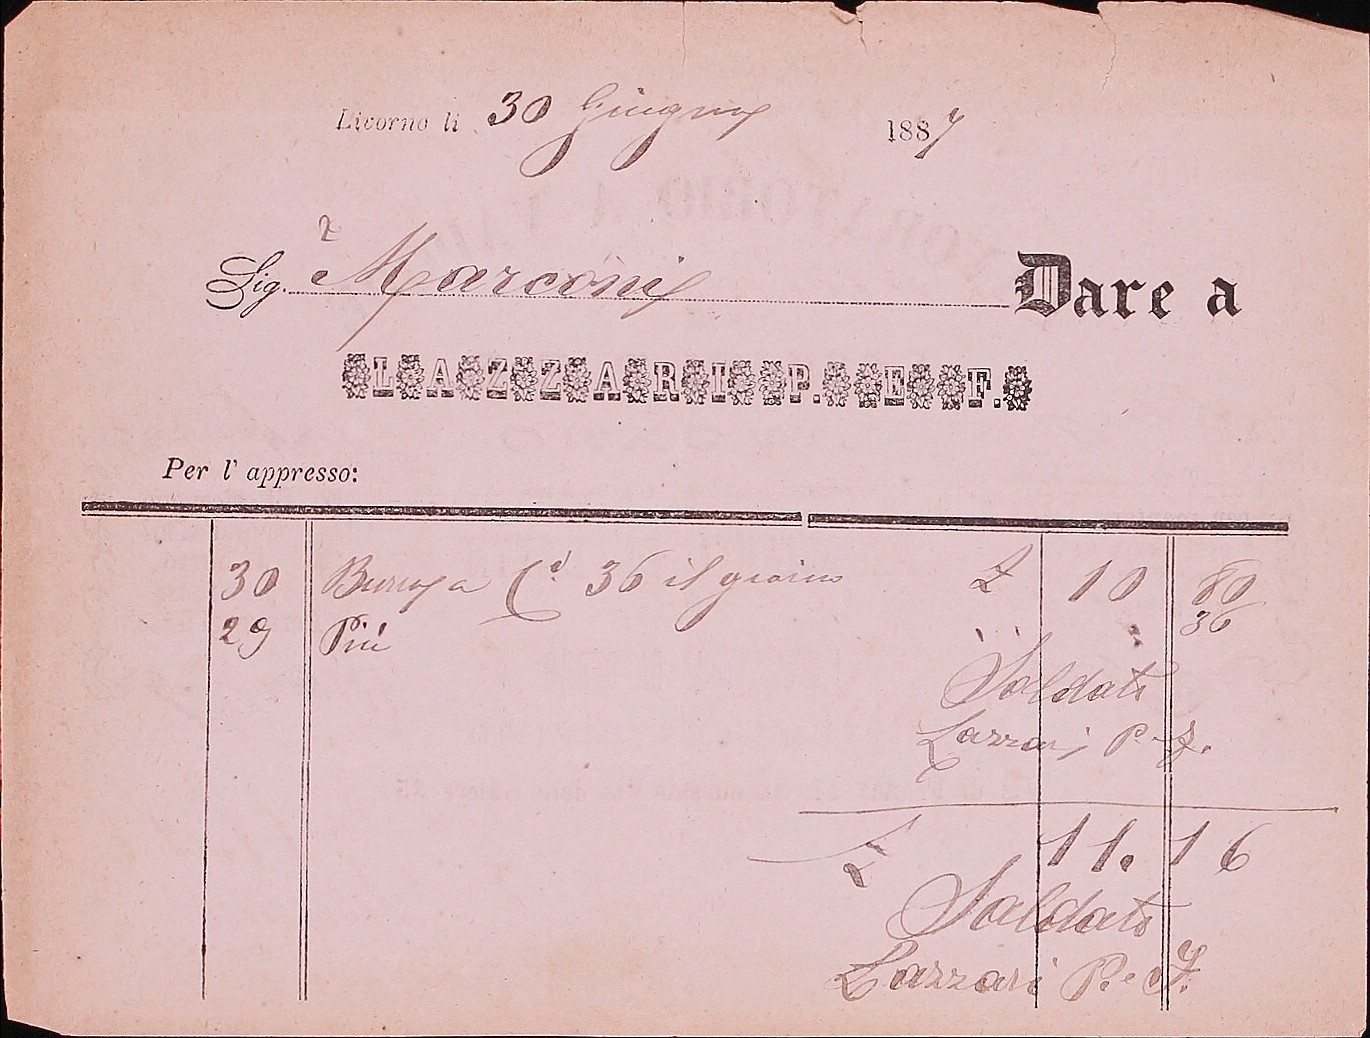 Livorno li 30 Giugno 1887
Sig.r Marconi Dare a
LAZZARI P. E F.
Per l' appresso:
30 Burro a C.i 36 il giorno £ 10 80
29 Più " " 36
Saldato
Lazzari P. e F.
£ 11. 16
Saldato
Lazzari P. e F.